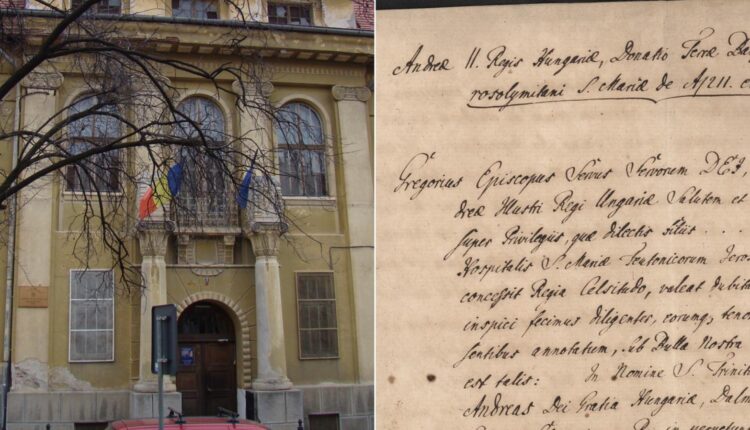 Andreæ II. Regis Hungariæ, Donatio Terræ
rosolymitani S. Mariæ de A 1211.
Gregorius Episcopus Servus Servorum DEI,
dreæ Illustri Regi Ungariæ Salutem et
super Privilegiis, quæ dilectis filiis . . .
Hospitalis S. Mariæ Teutonicorum
concessit Regia Celsitudo, valeat
inspici fecimus diligenter,
sentibus annotatum, sub Bulla Nostra
est talis: In Nomine S.
Andreas Dei Gratia Hungariæ,